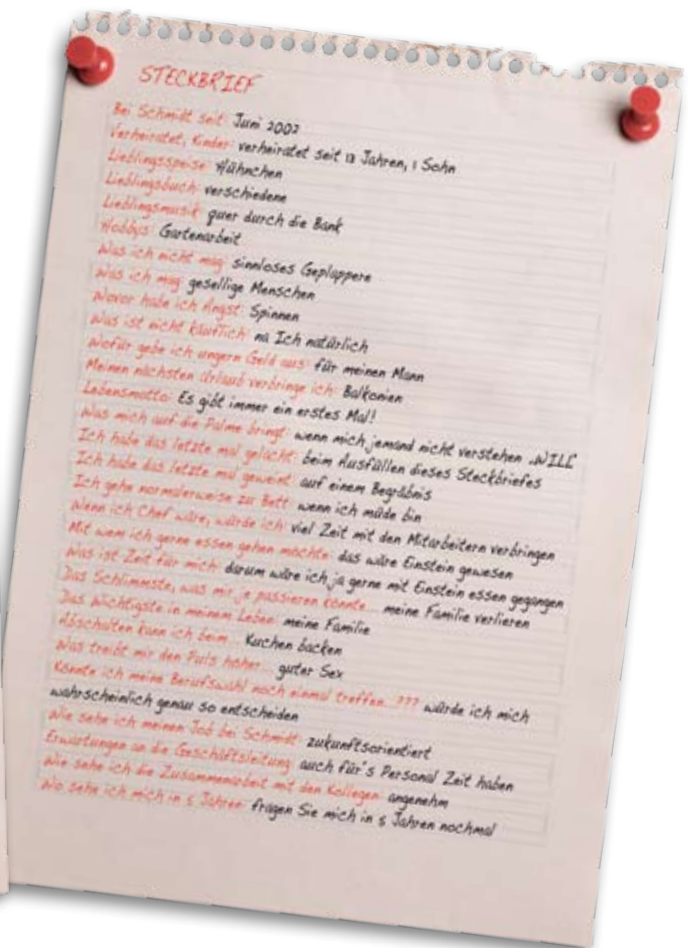 STECKBRIEF
Bei Schmidt seit: Juni 2002
Verheiratet, Kinder: verheiratet seit 13 Jahren, 1 Sohn
Lieblingsspeise: Hühnchen
Lieblingsbuch: verschiedene
Lieblingsmusik: quer durch die Bank
Hobbys: Gartenarbeit
Was ich nicht mag: sinnloses Geplappere
Was ich mag: gesellige Menschen
Wovor habe ich Angst: Spinnen
Was ist nicht käuflich: na Ich natürlich
Wofür gebe ich ungern Geld aus: für meinen Mann
Meinen nächsten Urlaub verbringe ich: Balkonien
Lebensmotto: Es gibt immer ein erstes Mal!
Was mich auf die Palme bringt: wenn mich jemand nicht verstehen „WILL“
Ich habe das letzte mal gelacht: beim Ausfüllen dieses Steckbriefes
Ich habe das letzte mal geweint: auf einem Begräbnis
Ich gehe normalerweise zu Bett: wenn ich müde bin
Wenn ich Chef wäre, würde ich: viel Zeit mit den Mitarbeitern verbringen
Mit wem ich gerne essen gehen möchte: das wäre Einstein gewesen
Was ist Zeit für mich: darum wäre ich ja gerne mit Einstein essen gegangen
Das Schlimmste, was mir je passieren könnte... meine Familie verlieren
Das Wichtigste in meinem Leben: meine Familie
Abschalten kann ich beim... Kuchen backen
Was treibt mir den Puls höher... guter Sex
Könnte ich meine Berufswahl noch einmal treffen...??? würde ich mich
wahrscheinlich genau so entscheiden
Wie sehe ich meinen Job bei Schmidt: zukunftsorientiert
Erwartungen an die Geschäftsleitung: auch für's Personal Zeit haben
Wie sehe ich die Zusammenarbeit mit den Kollegen: angenehm
Wo sehe ich mich in 5 Jahren: fragen Sie mich in 5 Jahren nochmal